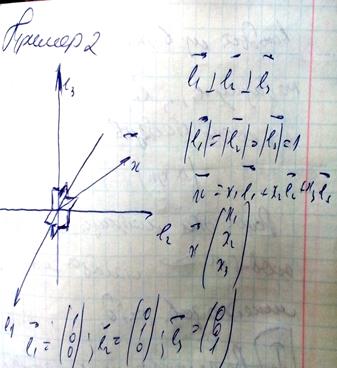 Пример 2
e⃗₁ ⊥ e⃗₂ ⊥ e⃗₃
|e⃗₁| = |e⃗₂| = |e⃗₃| = 1
x⃗ = x₁e⃗₁ + x₂e⃗₂ + x₃e⃗₃
x⃗ (x₁ x₂ x₃)
e₃
x⃗
e₂
e₁
e⃗₁ = (1 0 0); e⃗₂ = (0 1 0); e⃗₃ = (0 0 1)